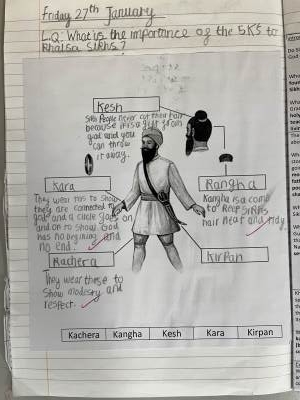 Friday 27th January
L.Q: What is the importance of the 5KS to
Khalsa Sikhs?
Kesh
Sikh People never cut their hair
because it is a gift from
god and you
can throw
it away.
Kara
They wear this to show
they are connected to
god and a circle goes on
and on to show God
has no begining and
no end.
Rangha
Kangha is a comb
to keep Sikhs
hair neat and tidy.
Kachera
They wear these to
show modesty and
respect.
Kirpan
Kachera Kangha Kesh Kara Kirpan